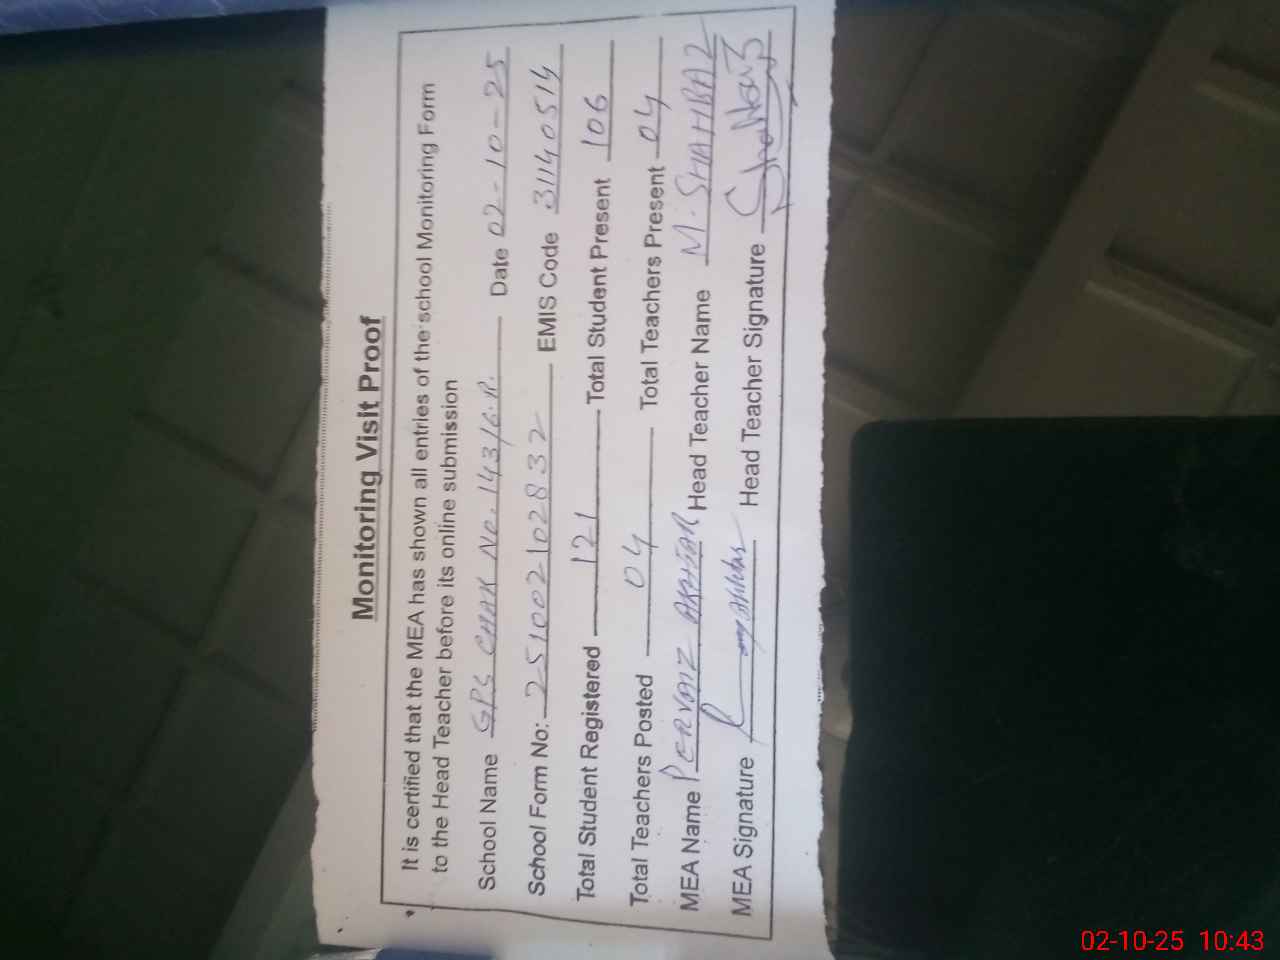 Monitoring Visit Proof
It is certified that the MEA has shown all entries of the school Monitoring Form
to the Head Teacher before its online submission
School Name GPS CHAK No. 143/6.R. Date 02-10-25
School Form No: 251002102832 EMIS Code 31140514
Total Student Registered 121 Total Student Present 106
Total Teachers Posted 04 Total Teachers Present 04
MEA Name PERVAIZ AKHTAR Head Teacher Name M. SHAHBAZ
MEA Signature Head Teacher Signature
02-10-25 10:43